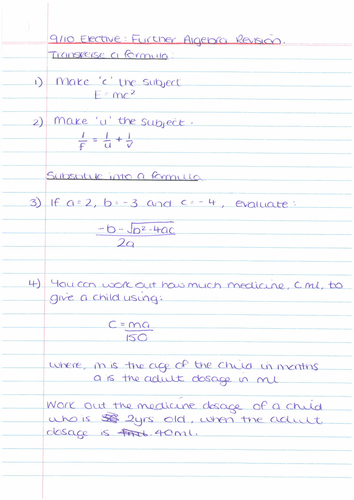 9/10 Elective: Further Algebra Revision.
Transpose a formula:
1) Make 'c' the subject
E = mc²
2) Make 'u' the subject.
1/f = 1/u + 1/v
Substitute into a formula
3) If a = 2, b = -3 and c = -4, evaluate:
-b - √b² - 4ac
2a
4) You can work out how much medicine, C ml, to
give a child using:
C = ma
150
where, m is the age of the child in months
a is the adult dosage in ml
Work out the medicine dosage of a child
who is 2yrs old, when the adult
dosage is 40ml.